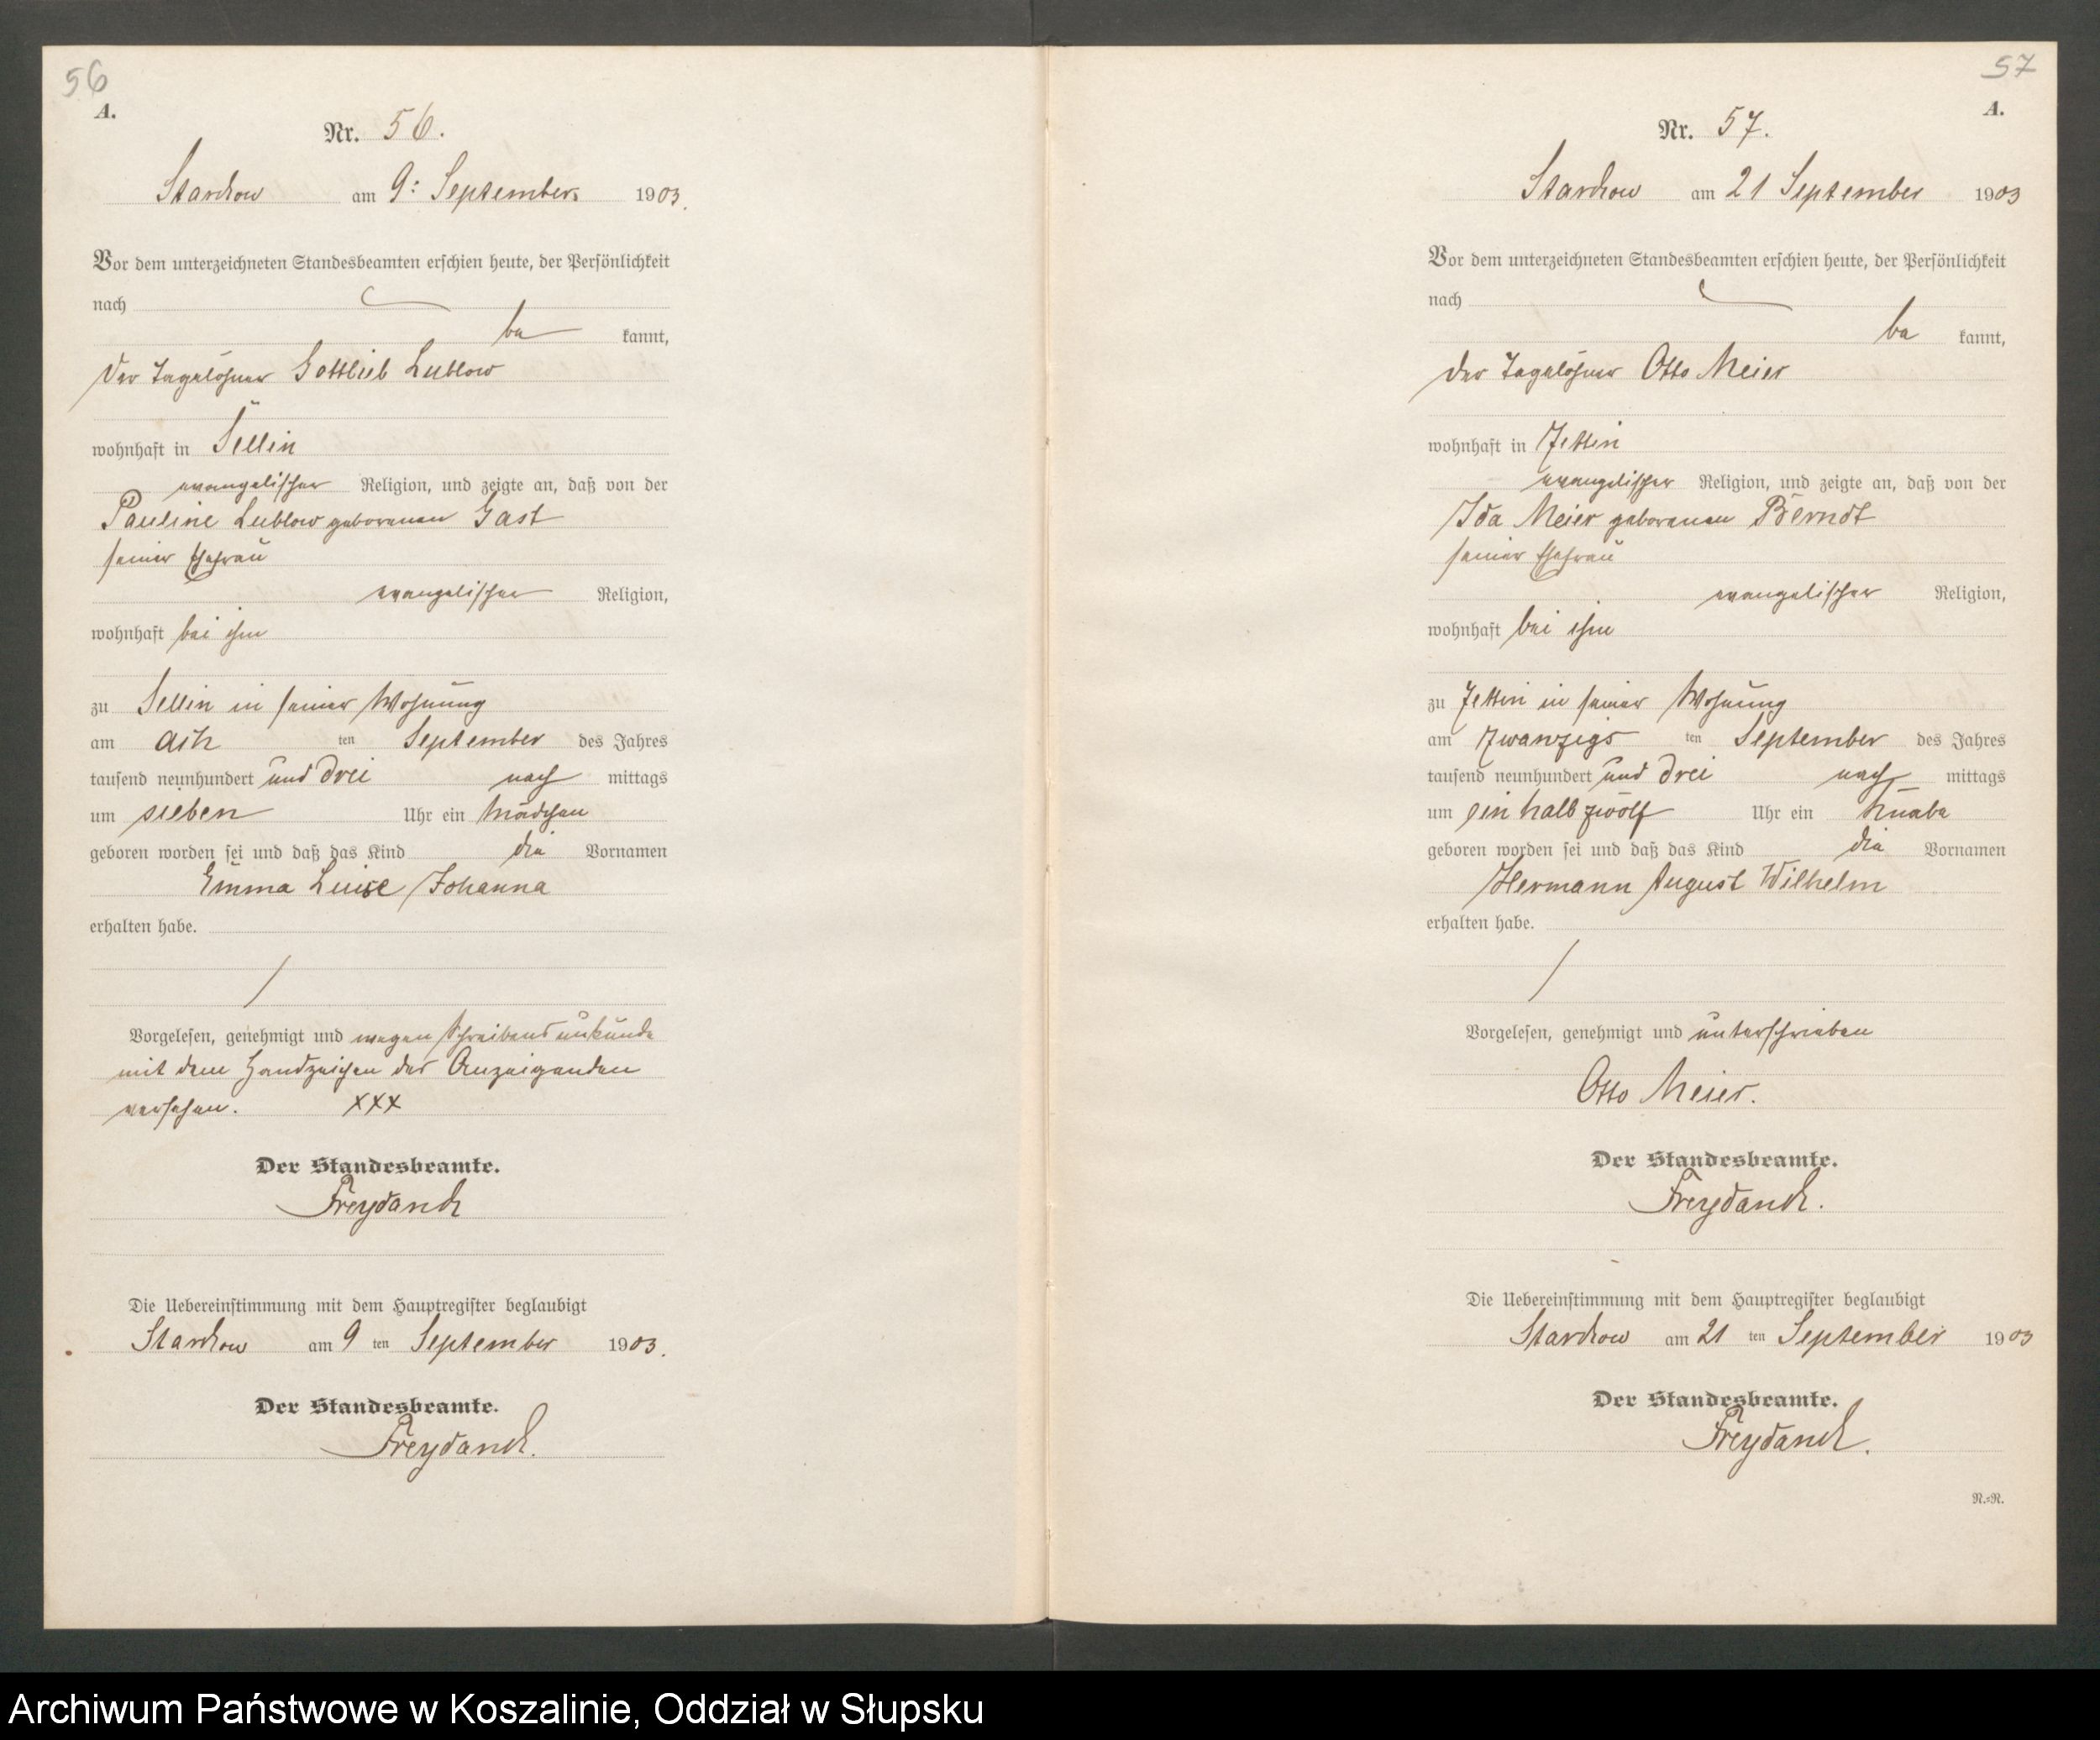 56
A.
Nr. 56.
Starckow am 9: September 1903.
Vor dem unterzeichneten Standesbeamten erschien heute, der Persönlichkeit
nach
be kannt,
der Tagelöhner Gottlieb Lublow
wohnhaft in Sellin
evangelischer Religion, und zeigte an, daß von der
Pauline Lublow geborenen Gast
seiner Ehefrau
evangelischer Religion,
wohnhaft bei ihm
zu Sellin in seiner Wohnung
am acht ten September des Jahres
tausend neunhundert und drei nach mittags
um sieben Uhr ein Mädchen
geboren worden sei und daß das Kind die Vornamen
Emma Luise Johanna
erhalten habe.
Vorgelesen, genehmigt und wegen Schreibensunkunde
mit dem Handzeichen des Anzeigenden
versehen. XXX
Der Standesbeamte.
Freydanck
Die Uebereinstimmung mit dem Hauptregister beglaubigt
Starckow am 9 ten September 1903.
Der Standesbeamte.
Freydanck.
57
A.
Nr. 57.
Starckow am 21 September 1903
Vor dem unterzeichneten Standesbeamten erschien heute, der Persönlichkeit
nach
be kannt,
der Tagelöhner Otto Meier
wohnhaft in Jettin
evangelischer Religion, und zeigte an, daß von der
Ida Meier geborenen Berndt
seiner Ehefrau
evangelischer Religion,
wohnhaft bei ihm
zu Jettin in seiner Wohnung
am zwanzigs ten September des Jahres
tausend neunhundert und drei nach mittags
um ein halb zwölf Uhr ein Knabe
geboren worden sei und daß das Kind die Vornamen
Hermann August Wilhelm
erhalten habe.
Vorgelesen, genehmigt und unterschrieben
Otto Meier.
Der Standesbeamte.
Freydanck.
Die Uebereinstimmung mit dem Hauptregister beglaubigt
Starckow am 21 ten September 1903
Der Standesbeamte.
Freydanck.
R.=R.
Archiwum Państwowe w Koszalinie, Oddział w Słupsku